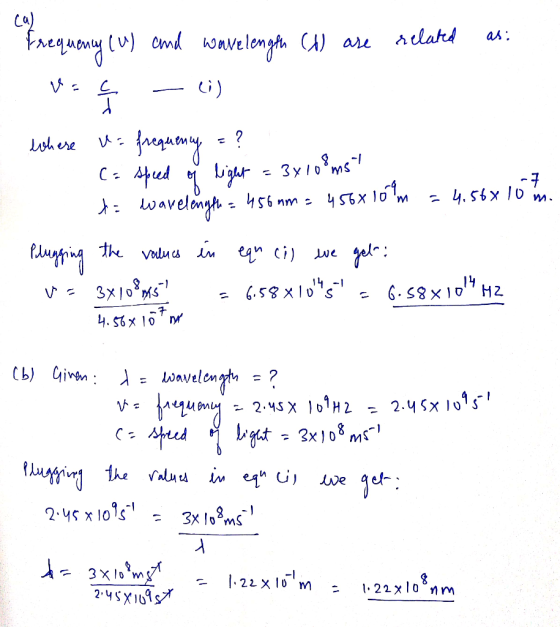 (a)
Frequency (ν) and wavelength (λ) are related as:
ν = c/λ — (i)
where ν = frequency = ?
C = speed of light = 3×10⁸ms⁻¹
λ = wavelength = 456 nm = 456×10⁻⁹m = 4.56×10⁻⁷m.
Plugging the values in eqn (i) we get:
ν = 3×10⁸ms⁻¹ / 4.56×10⁻⁷m = 6.58×10¹⁴s⁻¹ = 6.58×10¹⁴HZ
(b) Given: λ = wavelength = ?
ν = frequency = 2.45×10⁹HZ = 2.45×10⁹s⁻¹
C = speed of light = 3×10⁸ms⁻¹
Plugging the values in eqn (i) we get:
2.45×10⁹s⁻¹ = 3×10⁸ms⁻¹ / λ
λ = 3×10⁸ms⁻¹ / 2.45×10⁹s⁻¹ = 1.22×10⁻¹m = 1.22×10⁸nm